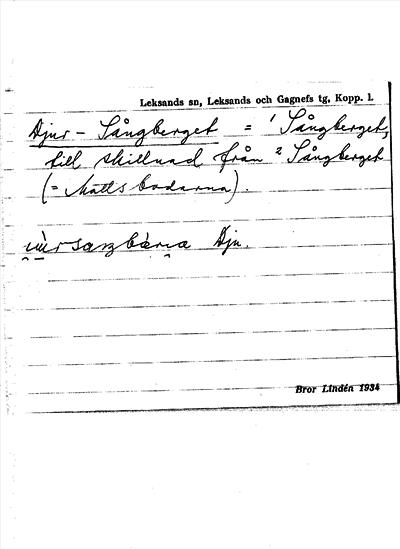 Leksands sn, Leksands och Gagnefs tg, Kopp. l.
Djur-Sångberget = ¹ Sångberget,
till skillnad från ² Sångberget
(= Mattsbodarna).
Dju.
Bror Lindén 1934